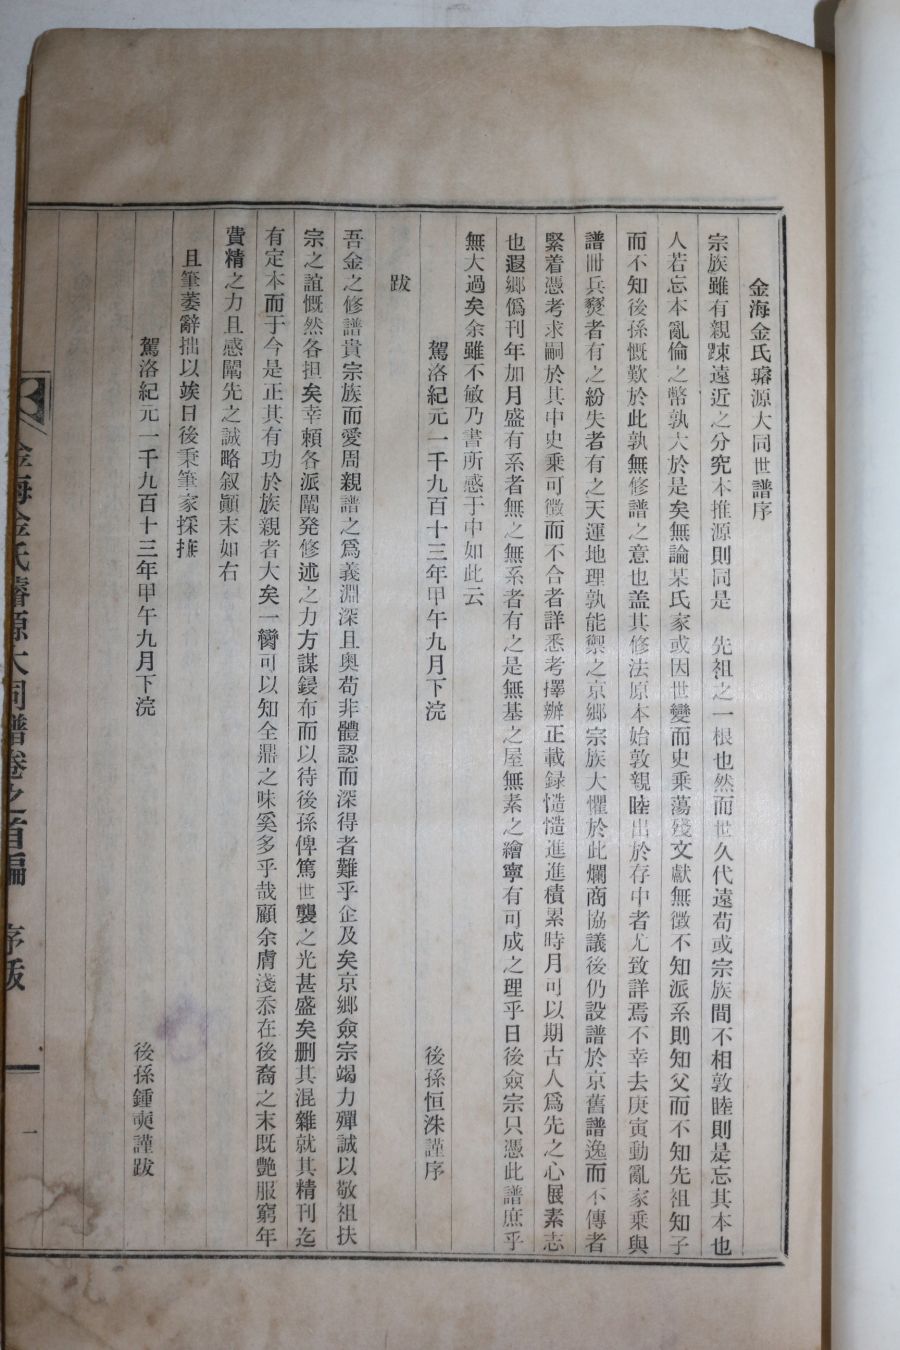 金海金氏璿源大同世譜序
宗族雖有親踈遠近之分究本推源則同是　先祖之一根也然而世久代遠苟或宗族間不相敦睦則是忘其本也
人若忘本亂倫之幣孰大於是矣無論某氏家或因世變而史乘蕩殘文獻無徵不知派系則知父而不知先祖知子
而不知後孫慨歎於此孰無修譜之意也盖其修法原本始敦親睦出於存中者尤致詳焉不幸去庚寅動亂家乘與
譜冊兵燹者有之紛失者有之天運地理孰能禦之京鄉宗族大懼於此爛商協議後仍設譜於京舊譜逸而不傳者
緊着憑考求嗣於其中史乘可徵而不合者詳悉考擇辦正載録慥慥進進積累時月可以期古人爲先之心展素志
也遐鄉僞刊年加月盛有系者無之無系者有之是無基之屋無素之繪寧有可成之理乎日後僉宗只憑此譜庶乎
無大過矣余雖不敏乃書所感于中如此云
駕洛紀元一千九百十三年甲午九月下浣　後孫恒洙謹序
跋
吾金之修譜貴宗族而愛周親譜之爲義淵深且奥苟非體認而深得者難乎企及矣京鄉僉宗竭力殫誠以敬祖扶
宗之誼慨然各担矣幸頼各派闡発修述之力方謀鋟布而以待後孫俾篤世襲之光甚盛矣删其混雜就其精刊迄
有定本而于今是正其有功於族親者大矣一臠可以知全鼎之味奚多乎哉顧余膚淺忝在後裔之末既艶服窮年
費精之力且感闡先之誠略叙顚末如右
且筆萎辭拙以竢日後秉筆家採摭
駕洛紀元一千九百十三年甲午九月下浣　後孫鍾奭謹跋
金海金氏璿源大同譜卷之首編　序跋　一